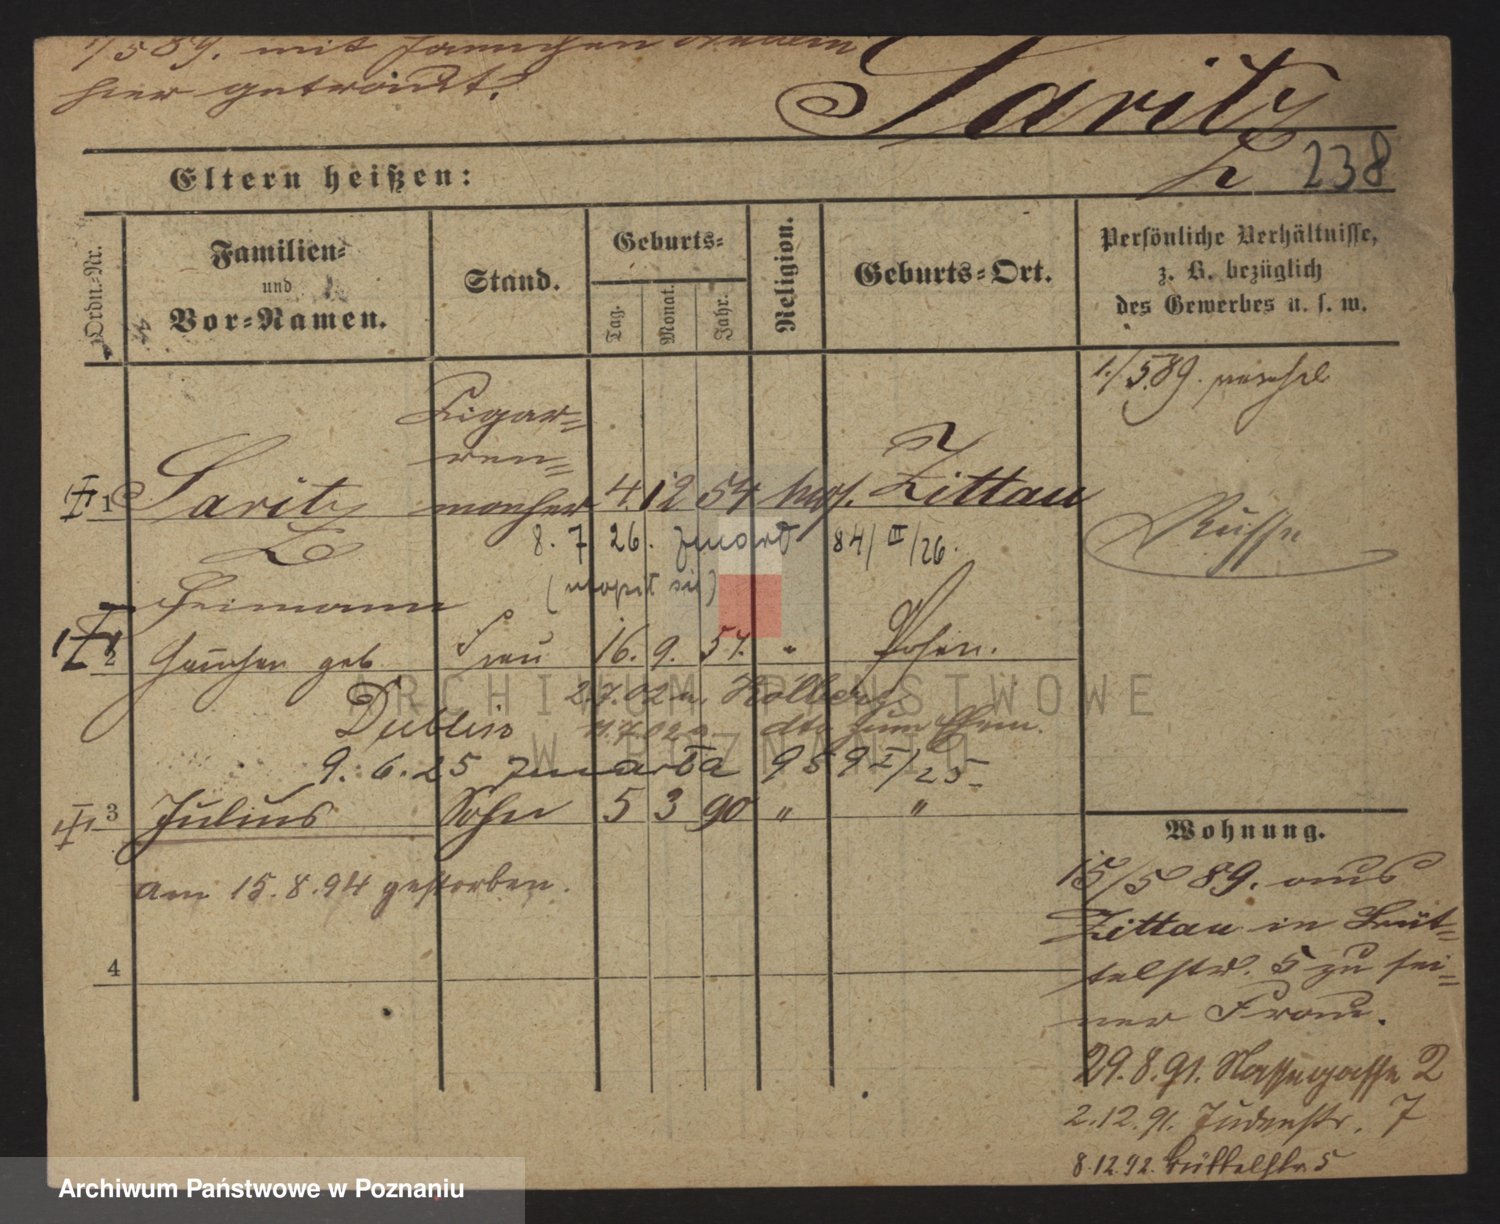 1/5 89. mit
hier getraut.
Saritz
238
Eltern heißen:
Ordn.-Nr.
Familien-
und
Vor-Namen.
Stand.
Geburts-
Tag.
Monat.
Jahr.
Religion.
Geburts-Ort.
Persönliche Verhältnisse,
z. B. bezüglich
des Gewerbes u. s. w.
1./5.89.
Cigar-
ren-
1 Saritz macher 4. 12 54 mos. Zittau
Russe
8. 7. 26. zmarł 84/II/26.
Heimann
2 geb Frau 16. 9. 57. " Posen.
2.7.02 n. Kolberg
Dublin 11.7.02 dto
9. 6. 25 zmarła 959 I/25
3 Julius Sohn 5 3 90 " "
Wohnung.
am 15.8.94 gestorben.
15/5 89. aus
Zittau in Büt-
telstr. 5 zu sei-
ner Frau.
4
29.8.91. Nassegasse 2
2.12.91. Judenstr. 7
8.12.92. Büttelstr. 5
ARCHIWUM PAŃSTWOWE
W POZNANIU
Archiwum Państwowe w Poznaniu